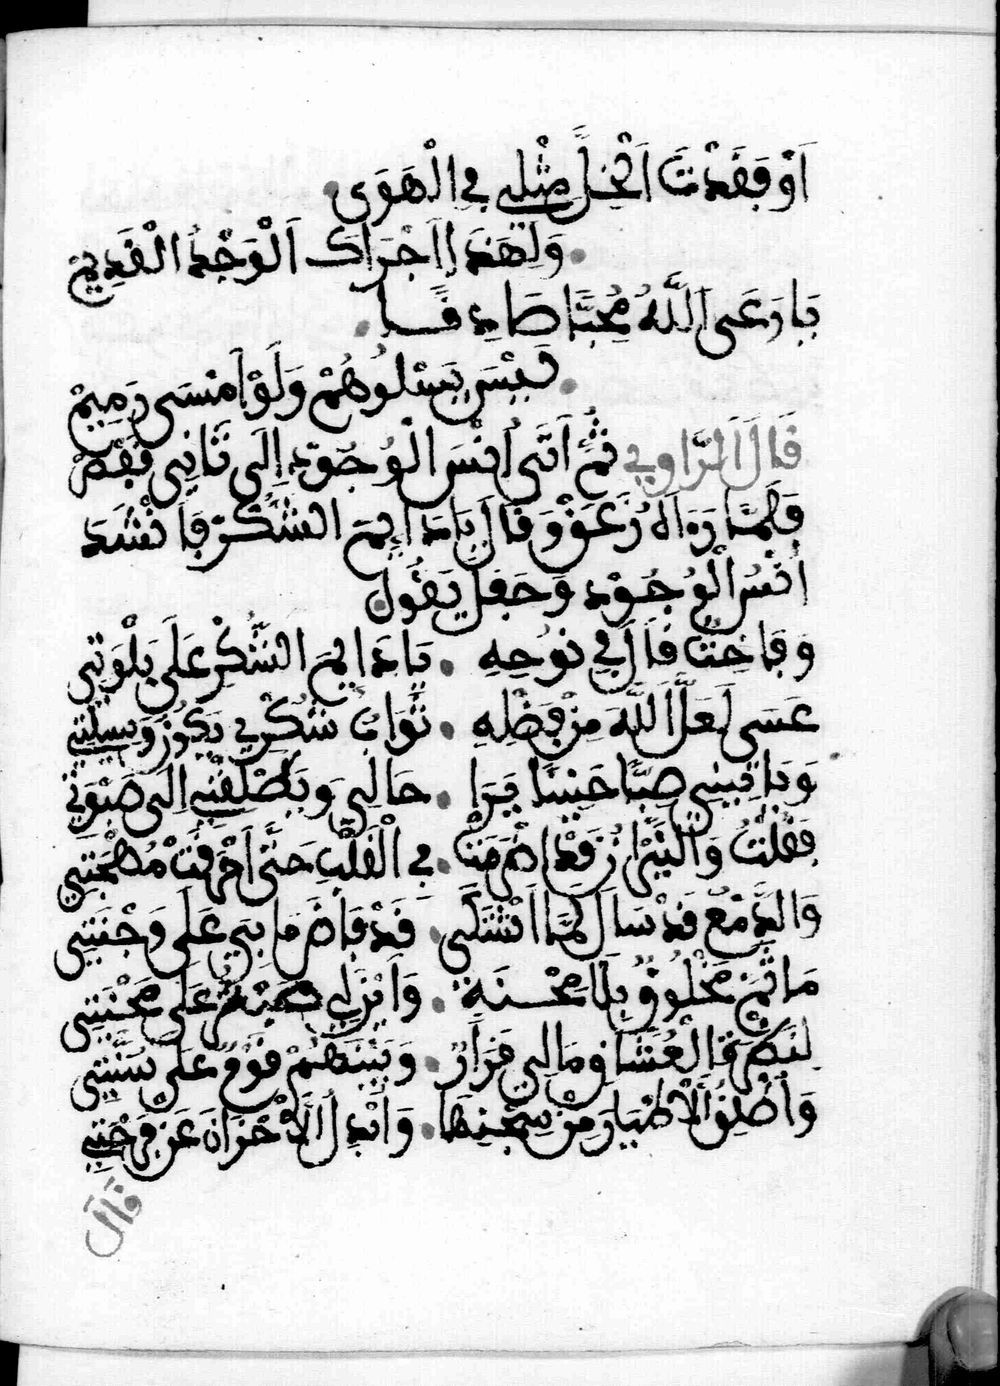 اَوْ فَقَدْتَ اَلْخِلَّ مِثْلِي فِي الْهَوَى
وَلِهَذَا اَجْرَاكَ اَلْوَجْدُ الْقَدِيمْ
يَا رَعَى اَللَّهُ مُحِبًّا صَادِقًا
لَيْسَ يَسْلُوهُمْ وَلَوْ اَمْسَى رَمِيمْ
قَالَ اَلرَّاوِي ثُمَّ اَتَى اُنْسَ الْوُجُودِ اِلَى ثَانِي قَفَصْ
فَلَمَّا رَءَاهُ زَعَقْ وَقَالَ يَا دَايِمَ الشُّكْرِ فَاَنْشَدَ
اُنْسُ الْوُجُودْ وَجَعَلَ يَقُولْ
وَفَاخِتٌ قَالَ فِي نَوْحِهِ . يَا دَايِمَ الشُّكْرِ عَلَى بَلْوَتِي
عَسَى لَعَلَّ اَللَّهَ مِنْ فَضْلِهِ . ثَوَابُ شُكْرِي يَكُونْ وَسِيلَتِي
حَالِي وَ اِلَى صَبْوَتِي
فَقُلْتُ وَالنِّيرَانُ قَدْ اُضْرِمَتْ . فِي الْقَلْبِ حَتَّى اَحْرَقَتْ مُهْجَتِي
وَالدَّمْعُ قَدْ سَالَ . قَدْ فَاضَ مَا بِي عَلَى وَجْنَتِي
مَا ثَمَّ مَخْلُوقٌ بِلَا مِحْنَةٍ . عَلَى مِحْنَتِي
الْعُشَّاقِ وَمَالِي قَرَارْ . قَوْمٌ عَلَى سُنَّتِي
وَاُطْلِقُ الْاَطْيَارَ مِنْ سِجْنِهَا . وَاُبْدِلُ الْاَحْزَانَ عَنْ فَرْحَتِي
قَالَ